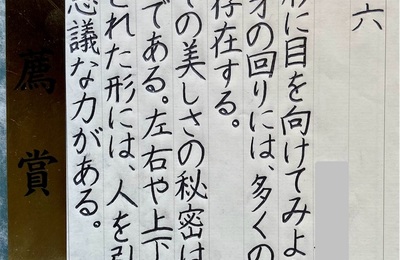 六
形に目を向けてみよ
身の回りには、多くの
存在する。
その美しさの秘密は
である。左右や上下
された形には、人を引
思議な力がある。
薦賞